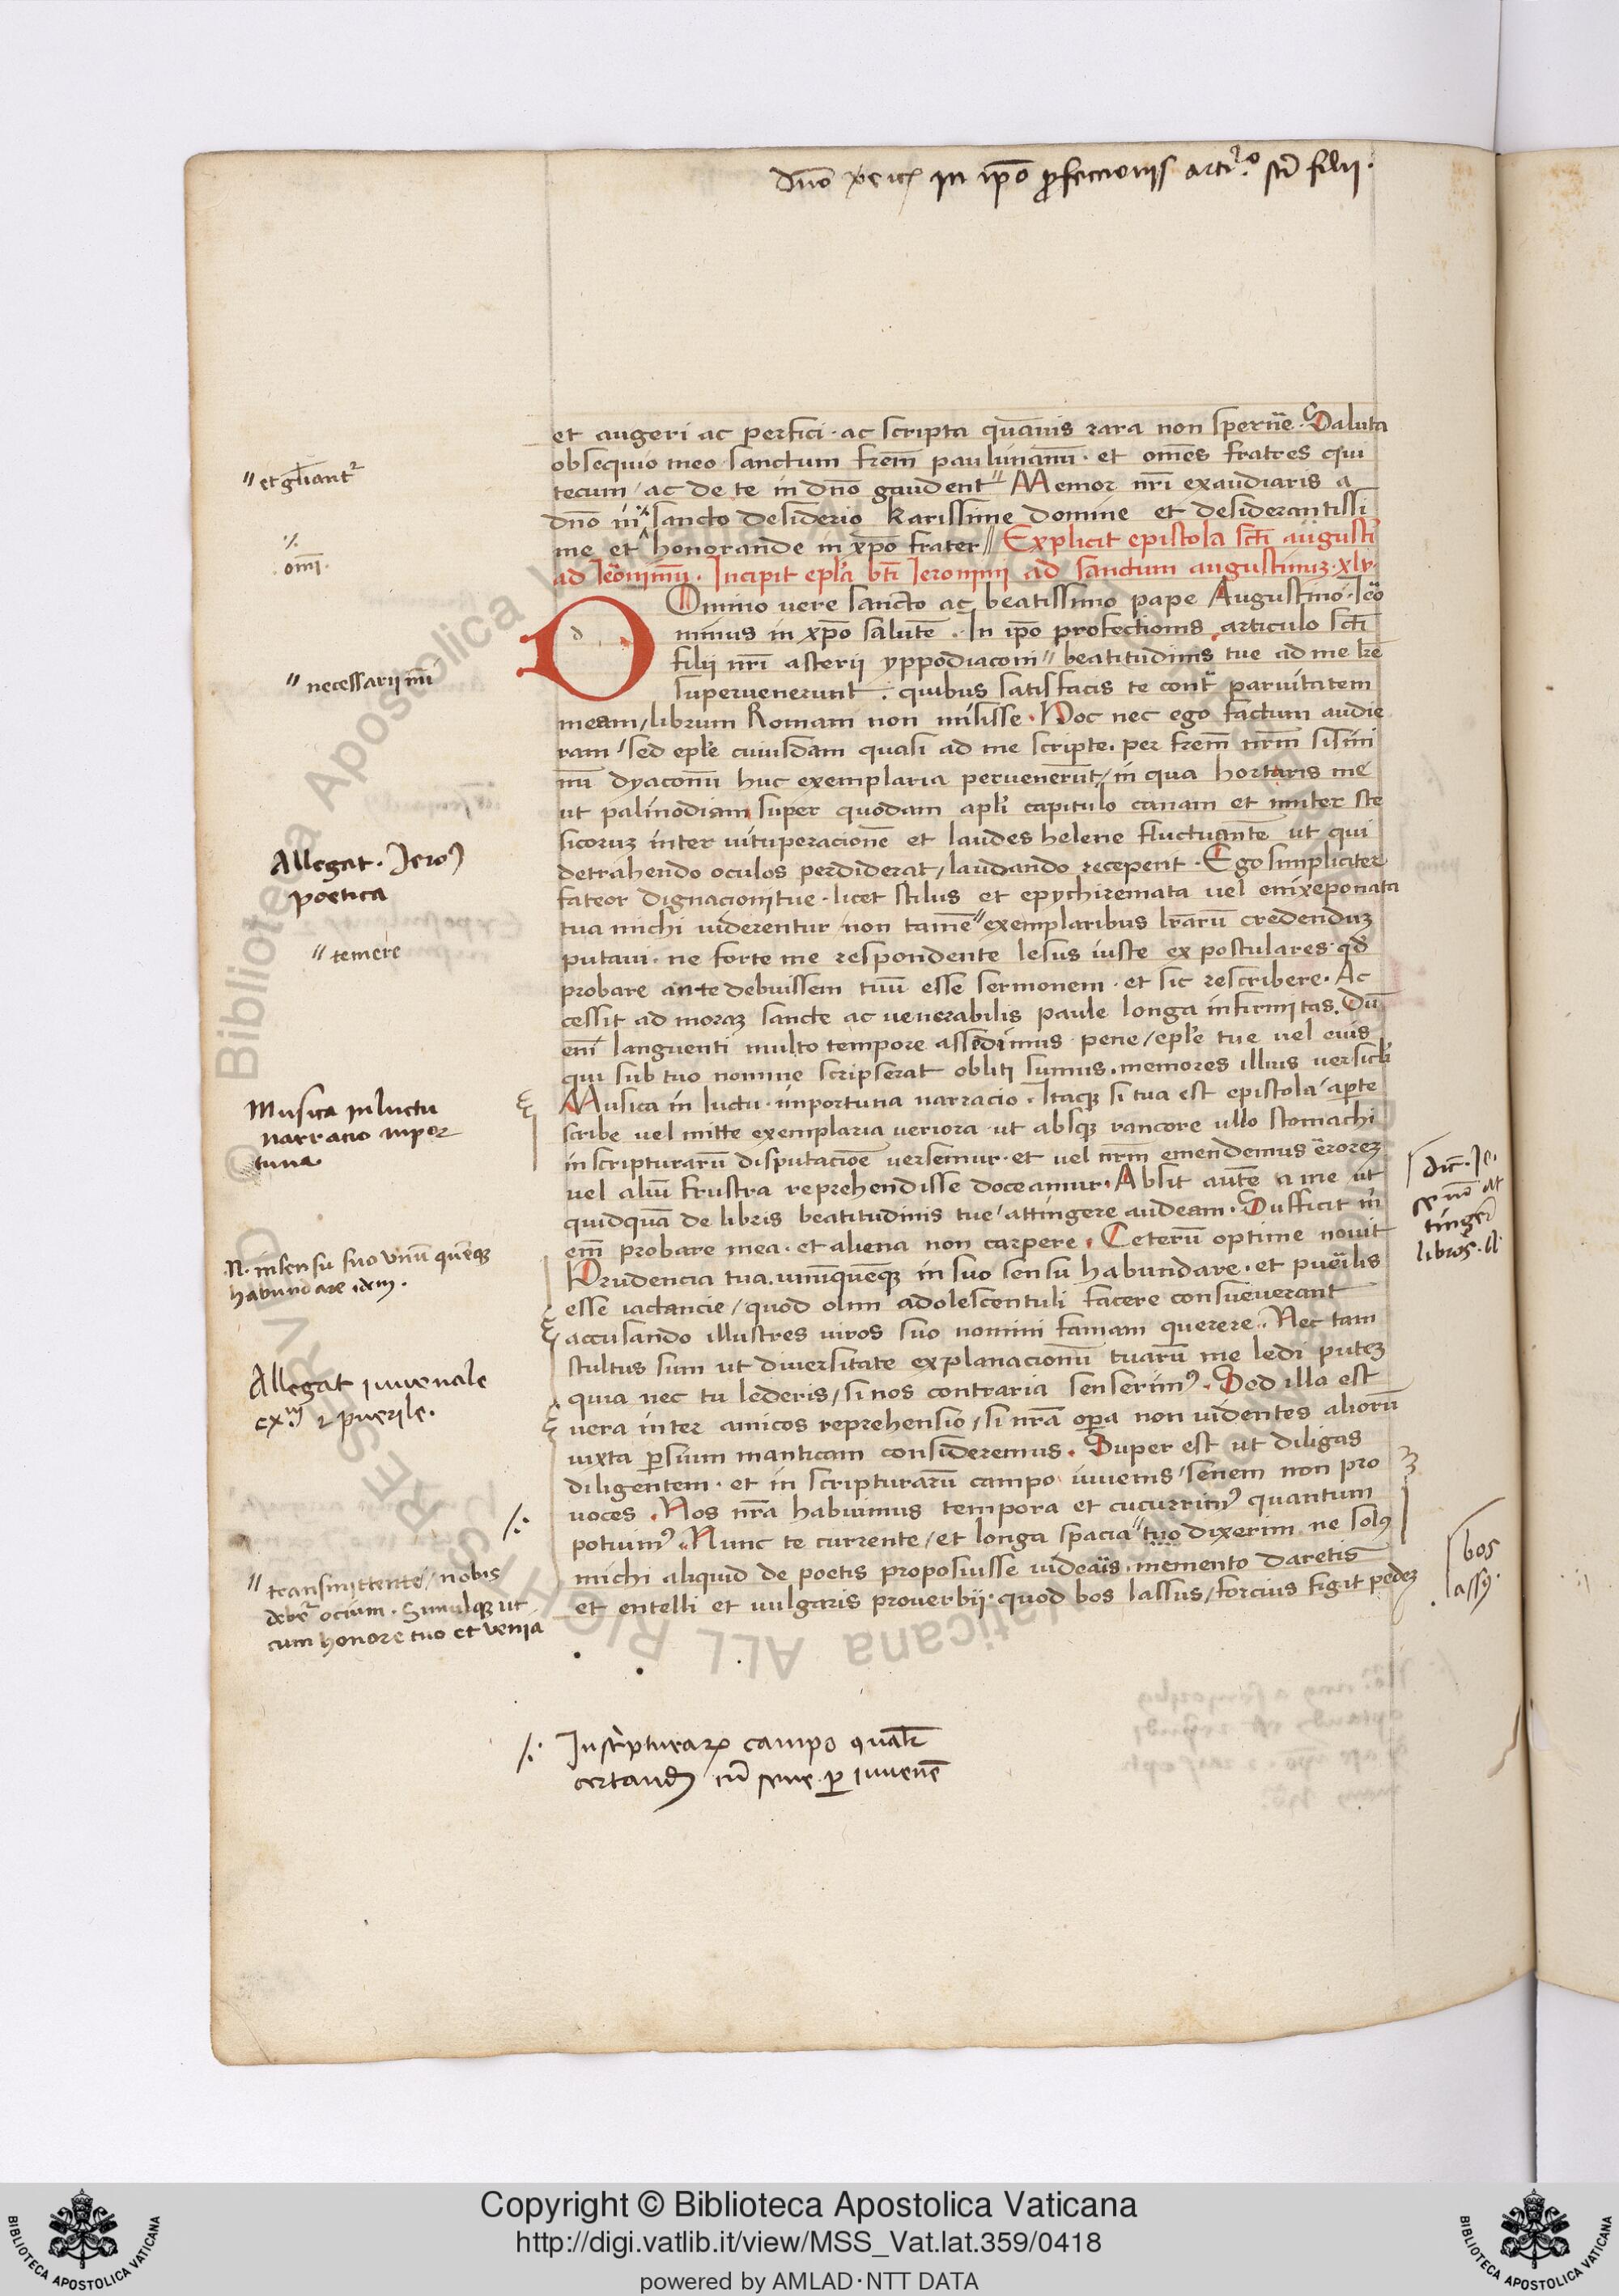 et augeri ac perfici · ac scripta quāuis rara non sperñe · Saluta
obsequio meo sanctum frem̄ paulinianū · et om̄es fratres qui
tecum / ac de te in dn̄o gaudent〃 Memor nr̄i exaudiaris a
dn̄o in sancto desiderio karissime domine et desiderantissi
me et honorande in xp̄o frater // Explicit epistola sc̄ti augusti
ad Ieronimū · Incipit ep̄la bt̄i Ieronimi ad sanctum augustinuꝫ · xlv ·
Omino uere sancto ac beatissimo pape Augustino · Iero
nimus in xp̄o salutē · In ip̄o profectionis articulo sc̄ti
filij nr̄i asterij yppodiaconi〃 beatitudinis tue ad me lr̄e
superuenerunt · quibus satisfacis te contra paruitatem
meam / librum Romam non misisse · Hoc nec ego factum audie
ram / sed ep̄le cuiusdam quasi ad me scripte · per frem̄ nr̄m sisini
nū dyaconū huc exemplaria peruenerūt / in qua hortaris me
ut palinodiam super quodam apl̄i capitulo canam et imiter ste
sicoruꝫ inter uituperacionē et laudes helene fluctuantē ut qui
detrahendo oculos perdiderat / laudando receperit · Ego simpliciter
fateor dignacioni tue · licet stilus et epychiremata uel enixeponata
tua michi uiderentur / non tamē〃 exemplaribus lr̄arū credenduꝫ
putaui · ne forte me respondente lesus iuste expostulares · qd̄
probare ante debuissem tuū esse sermonem · et sic rescribere · Ac
cessit ad moraꝫ sancte ac uenerabilis paule longa infirmitas. Dū
enī languenti multo tempore assedimus pene / ep̄le tue uel eius
qui sub tuo nomine scripserat obliti sumus · memores illius uersicl̄i
Musica in luctu · importuna narracio · Itaqꝫ si tua est epistola / aperte
scribe uel mitte exemplaria ueriora · ut absqꝫ rancore ullo stomachi
in scripturarū disputacione uersemur · et uel nr̄m emendemus erroreꝫ
uel aliū frustra reprehendisse doceamur · Absit autē a me ut
quidquā de libris beatitudinis tue / attingere audeam · Sufficit m̄
em̄ probare mea · et aliena non carpere · Ceterū optime nouit
Prudencia tua · unūquemqꝫ in suo sensu habundare · et puerilis
esse iactancie / quod olim adolescentuli facere consueuerant
accusando illustres uiros suo nomini famam querere · Nec tam
stultus sum ut diuersitate explanacionū tuarū me ledi puteꝫ
quia nec tu lederis / si nos contraria senserimꝰ · Sed illa est
uera inter amicos reprehensio / si nr̄a opera non uidentes aliorū
iuxta persium manticam consideremus · Super est ut diligas
diligentem · et in scripturarū campo iuuenis / senem non pro
uoces · Nos nr̄a habuimus tempora et cucurrimꝰ quantum
potuimꝰ · Nunc te currente / et longa spacia〃 tuo dixerim ne solꝰ
michi aliquid de poetis proposuisse uidearis · memento daretis
et entelli et uulgaris prouerbij · quod bos lassus / forcius figit pedeꝫ
〃 et gl̄iantr
·/· om̄i ·
〃 necessarij mī
Allegat · Iero
poetica
〃 temere
Musica in luctu
narracio inpor
tuna
N · in sensu suo unū quēqꝫ
habundare
Allegat iuuenale
puerile ·
〃 transmittente / nobis
debetur ocium · Simulqꝫ ut
cum honore tuo et venia
dic̄ · Ie ·
se nō at
tingere
libros · A ·
bos
lassꝰ ·
·/· In scripturaꝝ campo
certand cū sene per iuuenē
© Biblioteca Apostolica Vaticana ALL RIGHTS RESERVED
Copyright © Biblioteca Apostolica Vaticana
http://digi.vatlib.it/view/MSS_Vat.lat.359/0418
powered by AMLAD·NTT DATA
BIBLIOTECA APOSTOLICA VATICANA
BIBLIOTECA APOSTOLICA VATICANA